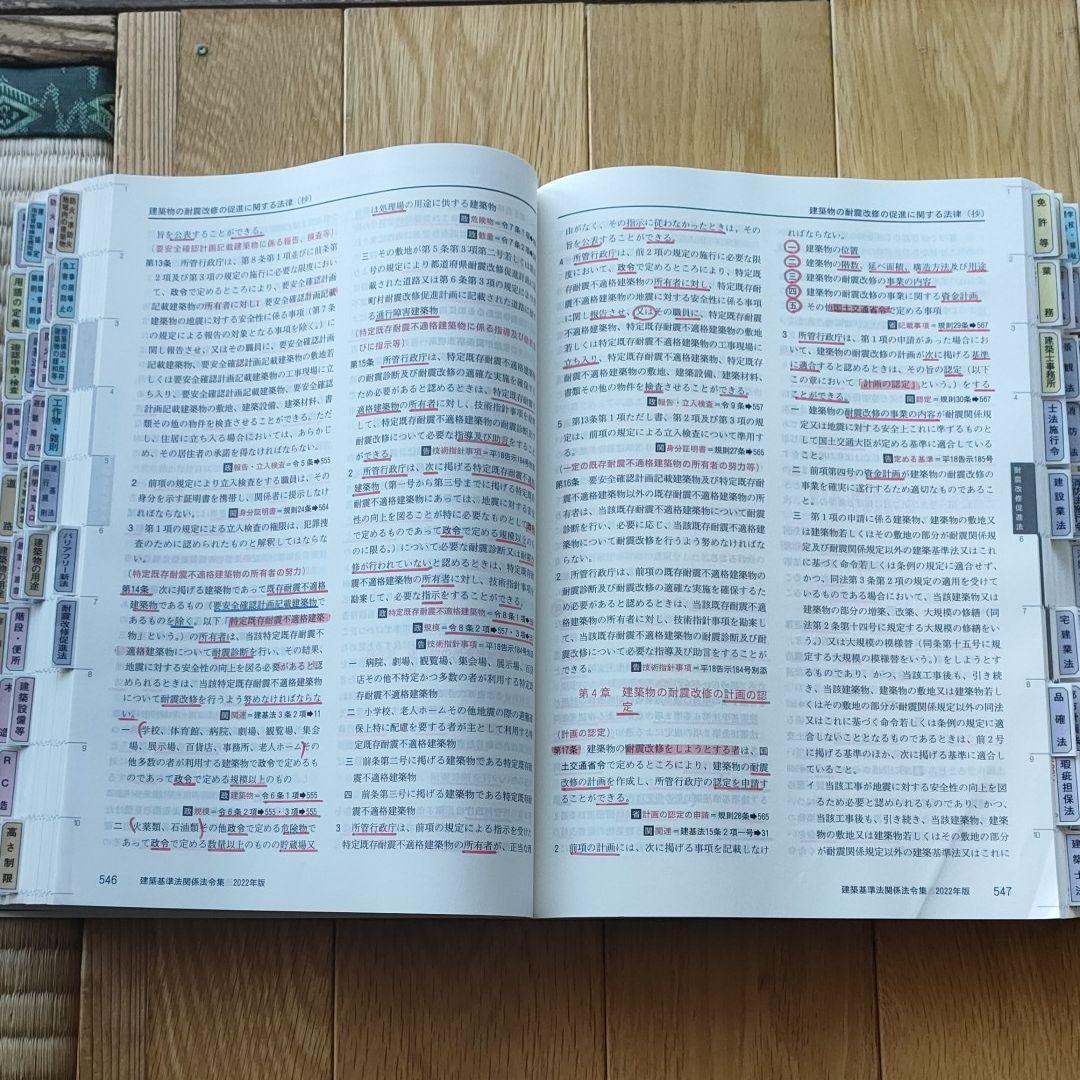 建築物の耐震改修の促進に関する法律(抄)
旨を公表することができる。
(要安全確認計画記載建築物に係る報告、検査等)
第13条 所管行政庁は、第8条第1項並びに前条第
2項及び第3項の規定の施行に必要な限度におい
て、政令で定めるところにより、要安全確認計画
記載建築物の所有者に対し、要安全確認計画記載
建築物の地震に対する安全性に係る事項(第7条
の規定による報告の対象となる事項を除く。)に
関し報告させ、又はその職員に、要安全確認計画
記載建築物、要安全確認計画記載建築物の敷地若
しくは要安全確認計画記載建築物の工事現場に立
ち入り、要安全確認計画記載建築物、要安全確認
計画記載建築物の敷地、建築設備、建築材料、書
類その他の物件を検査させることができる。ただ
し、住居に立ち入る場合においては、あらかじ
め、その居住者の承諾を得なければならない。
政報告・立入検査=令5条➡555
2 前項の規定により立入検査をする職員は、その
身分を示す証明書を携帯し、関係者に提示しなけ
ればならない。 関身分証明書=規則24条➡564
3 第1項の規定による立入検査の権限は、犯罪捜
査のために認められたものと解釈してはならな
い。
(特定既存耐震不適格建築物の所有者の努力)
第14条 次に掲げる建築物であって既存耐震不適格
建築物であるもの(要安全確認計画記載建築物で
あるものを除く。以下「特定既存耐震不適格建築
物」という。)の所有者は、当該特定既存耐震不
適格建築物について耐震診断を行い、その結果、
地震に対する安全性の向上を図る必要があると認
められるときは、当該特定既存耐震不適格建築物
について耐震改修を行うよう努めなければならな
い。 関関連=建基法3条2項➡11
一 学校、体育館、病院、劇場、観覧場、集会
場、展示場、百貨店、事務所、老人ホームその
他多数の者が利用する建築物で政令で定めるも
のであって政令で定める規模以上のもの
政建築物=令6条1項➡555
政規模=令6条2項➡555・3項➡555
二 火薬類、石油類その他政令で定める危険物で
あって政令で定める数量以上のものの貯蔵場又
は処理場の用途に供する建築物
政危険物=令7条1項
政数量=令7条2項
三 その敷地が第5条第3項第二号若しくは
号の規定により都道府県耐震改修促進計画に
載された道路又は第6条第3項の規定により
町村耐震改修促進計画に記載された道路に接
る通行障害建築物
(特定既存耐震不適格建築物に係る指導及び助言
びに指示等)
第15条 所管行政庁は、特定既存耐震不適格建築物
の耐震診断及び耐震改修の適確な実施を確保する
ため必要があると認めるときは、特定既存耐震不
適格建築物の所有者に対し、技術指針事項を勘案
して、特定既存耐震不適格建築物の耐震診断及び
耐震改修について必要な指導及び助言をすること
ができる。 告技術指針事項=平18告示184号
2 所管行政庁は、次に掲げる特定既存耐震不適格
建築物(第一号から第三号までに掲げる特定既存
耐震不適格建築物にあっては、地震に対する安全
性の向上を図ることが特に必要なものとして政令
で定めるものであって政令で定める規模以上のも
のに限る。)について必要な耐震診断又は耐震改
修が行われていないと認めるときは、特定既存耐
震不適格建築物の所有者に対し、技術指針事項を
勘案して、必要な指示をすることができる。
政特定既存耐震不適格建築物=令8条1項
政規模=令8条2項➡557・3項
告技術指針事項=平18告示184号
一 病院、劇場、観覧場、集会場、展示場、百貨
店その他不特定かつ多数の者が利用する特定既
存耐震不適格建築物
二 小学校、老人ホームその他地震の際の避難確
保上特に配慮を要する者が主として利用する特
定既存耐震不適格建築物
三 前条第二号に掲げる建築物である特定既存耐
震不適格建築物
四 前条第三号に掲げる建築物である特定既存耐
震不適格建築物
3 所管行政庁は、前項の規定による指示を受けた
特定既存耐震不適格建築物の所有者が、正当な理
546 建築基準法関係法令集 2022年版
建築物の耐震改修の促進に関する法律(抄)
由がなく、その指示に従わなかったときは、その
旨を公表することができる。
4 所管行政庁は、前2項の規定の施行に必要な限
度において、政令で定めるところにより、特定既
存耐震不適格建築物の所有者に対し、特定既存耐
震不適格建築物の地震に対する安全性に係る事項
に関し報告させ、又はその職員に、特定既存耐震
不適格建築物、特定既存耐震不適格建築物の敷地
若しくは特定既存耐震不適格建築物の工事現場に
立ち入り、特定既存耐震不適格建築物、特定既存
耐震不適格建築物の敷地、建築設備、建築材料、
書類その他の物件を検査させることができる。
政報告・立入検査=令9条➡557
5 第13条第1項ただし書、第2項及び第3項の規
定は、前項の規定による立入検査について準用す
る。 関身分証明書=規則27条➡565
(一定の既存耐震不適格建築物の所有者の努力等)
第16条 要安全確認計画記載建築物及び特定既存耐
震不適格建築物以外の既存耐震不適格建築物の所
有者は、当該既存耐震不適格建築物について耐震
診断を行い、必要に応じ、当該既存耐震不適格建
築物について耐震改修を行うよう努めなければな
らない。
2 所管行政庁は、前項の既存耐震不適格建築物の
耐震診断及び耐震改修の適確な実施を確保するた
め必要があると認めるときは、当該既存耐震不適
格建築物の所有者に対し、技術指針事項を勘案し
て、当該既存耐震不適格建築物の耐震診断及び耐
震改修について必要な指導及び助言をすることが
できる。 告技術指針事項=平18告示184号別添
第4章 建築物の耐震改修の計画の認
定
(計画の認定)
第17条 建築物の耐震改修をしようとする者は、国
土交通省令で定めるところにより、建築物の耐震
改修の計画を作成し、所管行政庁の認定を申請す
ることができる。
省計画の認定の申請=規則28条➡565
関関連=建基法15条2項一号➡31
2 前項の計画には、次に掲げる事項を記載しなけ
ればならない。
一 建築物の位置
二 建築物の階数、延べ面積、構造方法及び用途
三 建築物の耐震改修の事業の内容
四 建築物の耐震改修の事業に関する資金計画
五 その他国土交通省令で定める事項
省記載事項=規則29条➡567
3 所管行政庁は、第1項の申請があった場合にお
いて、建築物の耐震改修の計画が次に掲げる基準
に適合すると認めるときは、その旨の認定(以下
この章において「計画の認定」という。)をする
ことができる。 関認定=規則30条➡567
一 建築物の耐震改修の事業の内容が耐震関係規
定又は地震に対する安全上これに準ずるものと
して国土交通大臣が定める基準に適合している
こと。 告定める基準=平18告示185号
二 前項第四号の資金計画が建築物の耐震改修の
事業を確実に遂行するため適切なものであるこ
と。
三 第1項の申請に係る建築物、建築物の敷地又
は建築物若しくはその敷地の部分が耐震関係規
定及び耐震関係規定以外の建築基準法又はこれ
に基づく命令若しくは条例の規定に適合せず、
かつ、同法第3条第2項の規定の適用を受けて
いるものである場合において、当該建築物又は
建築物の部分の増築、改築、大規模の修繕(同
法第2条第十四号に規定する大規模の修繕をい
う。)又は大規模の模様替(同条第十五号に規
定する大規模の模様替をいう。)をしようとする
ものであり、かつ、当該工事後も、引き続き、
当該建築物、建築物の敷地又は建築物若し
くはその敷地の部分が耐震関係規定以外の同法
又はこれに基づく命令又は条例の規定に適
合しないこととなるものであるときは、前2号
に掲げる基準のほか、次に掲げる基準に適合し
ていること。
イ 当該工事が地震に対する安全性の向上を図
るため必要と認められるものであり、かつ、
当該工事後も、引き続き、当該建築物、建築
物の敷地又は建築物若しくはその敷地の部分
が耐震関係規定以外の建築基準法又はこれに
建築基準法関係法令集 2022年版 547
用語の定義
確認申請・検査
工作物・雑則
道路
バリアフリー新法
建築物の用途
耐震改修促進法
階段・便所
建築設備等
木造
RC造
高さ制限
免許等
業務
建築士事務所
士法施行令
建設業法
耐震改修促進法
宅建業法
品確法
瑕疵担保法
建築士法
消防法